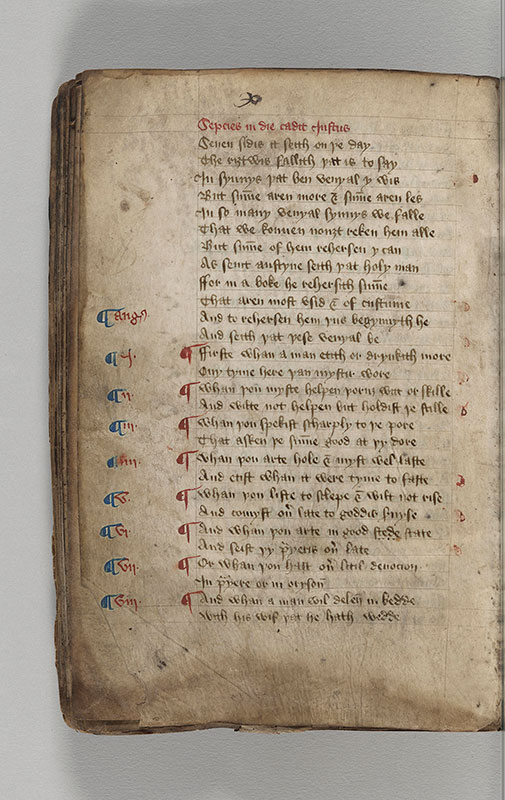 Sepcies in die cadit iustus
Seuen sidis it seith on þe day
The riȝtwis fallith þat is to say
In synnys þat ben venyal y wis
But su̅me aren more & su̅me aren les
In so many venyal synnys we falle
That we konnen nouȝt reken hem alle
But su̅me of hem rehersen y can
As seint austyne seith þat holy man
ffor in a boke he rehersith su̅me
That aren most vsid & of custume
¶ Aug9 And to rehersen hem þus begynnyth he
And seith þat þese venyal be
¶ .j. ¶ ffirste whan a man etith or drynkith more
Ony tyme here þan nystir wore
¶ .ii. ¶ Whan þou myste helpen þoruȝ wit or skille
And wilte not helpen but holdist þe stille
¶ iii. ¶ Whan þou spekist scharply to þe pore
That asken þe su̅me good at þy dore
¶ iiii. ¶ Whan þou arte hole & myst wel laste
And etist whan it were tyme to faste
¶ v. ¶ Whan þou liste to sclepe & wilt not rise
And comyst ou̅ late to goddis s̅uyse
¶ vi. ¶ And whan þou arte in good stede state
And seist þy p̅yeris ou̅ late
¶ vii. ¶ Or whan þou hast ou̅ litil deuocion
In p̅yere or in oryson
¶ viii. ¶ And whan a man wil delen in bedde
With his wif þat he hath wedde